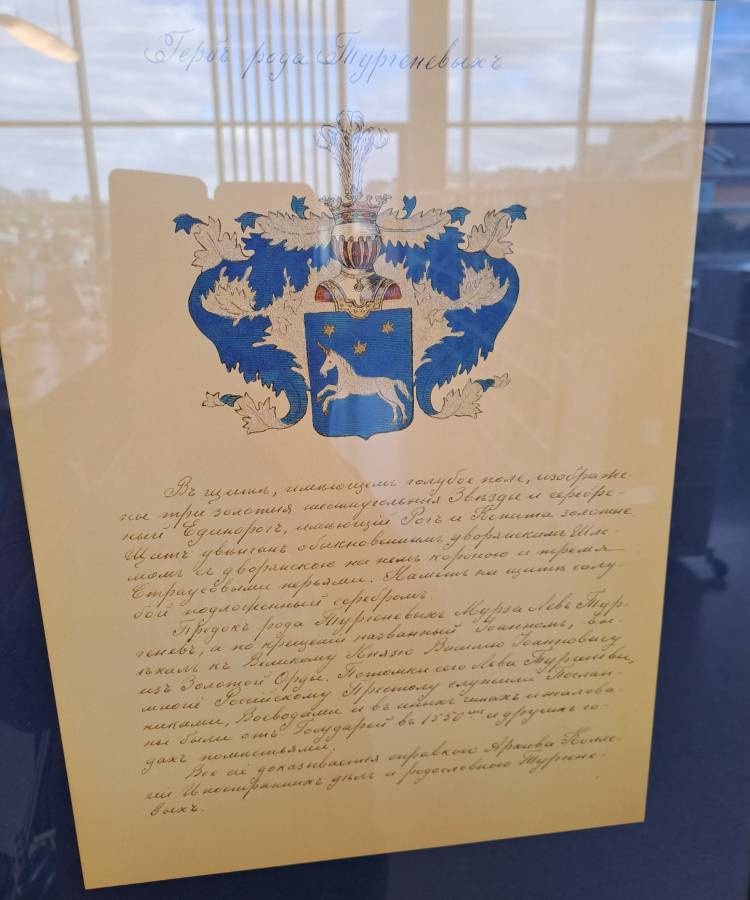 Гербъ рода Тургеневыхъ
Въ щитѣ, имѣющемъ голубое поле, изображе-
ны три золотыя шестиугольныя Звѣзды и серебре-
ный Единорогъ, имѣющій Рогъ и Копыта золотые.
Щитъ увѣнчанъ обыкновеннымъ дворянскимъ Шле-
момъ съ дворянскою на немъ короною и тремя
Страусовыми перьями. Наметъ на щитѣ голу-
бой подложенный серебромъ.
Предокъ рода Тургеневыхъ Мурза Левъ Тур-
геневъ, а по крещеніи названный Іоанномъ, вы-
ѣхалъ къ Великому Князю Василію Іоанновичу
изъ Золотой Орды. Потомки его Льва Тургеневы,
многіе Россійскому Престолу служили Послан-
никами, Воеводами и въ иныхъ чинахъ и жалова-
ны были отъ Государей въ 1550мъ и другихъ го-
дахъ помѣстьями.
Все сіе доказывается справкою Архива Колле-
гіи Иностранныхъ дѣлъ и родословною Тургене-
выхъ.